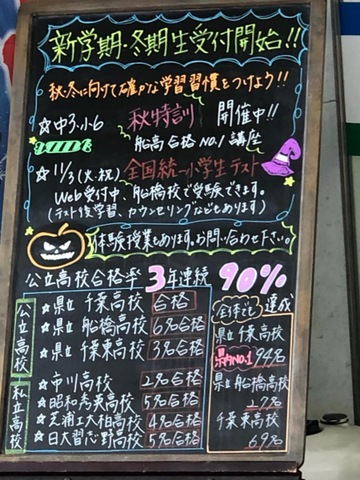 新学期・冬期生受付開始!!
秋・冬に向けて確かな学習習慣をつけよう!!
☆中3・小6 秋特訓 開催中!!
船高合格No.1講座
☆11/3(火・祝) 全国統一小学生テスト
Web受付中、船橋校で受験できます。
(テスト後学習、カウンセリングなどもあります)
体験授業もあります。お問い合わせ下さい。
公立高校合格率 3年連続 90%
公立高校
☆県立 千葉高校 合格
☆県立 船橋高校 6名合格
☆県立 千葉東高校 3名合格
私立高校
☆市川高校 2名合格
☆昭和秀英高校 5名合格
☆芝浦工大柏高校 4名合格
☆日大習志野高校 5名合格
達成
県立 千葉高校
県内No.1 94名
県立 船橋高校
27名
千葉東高校
69名